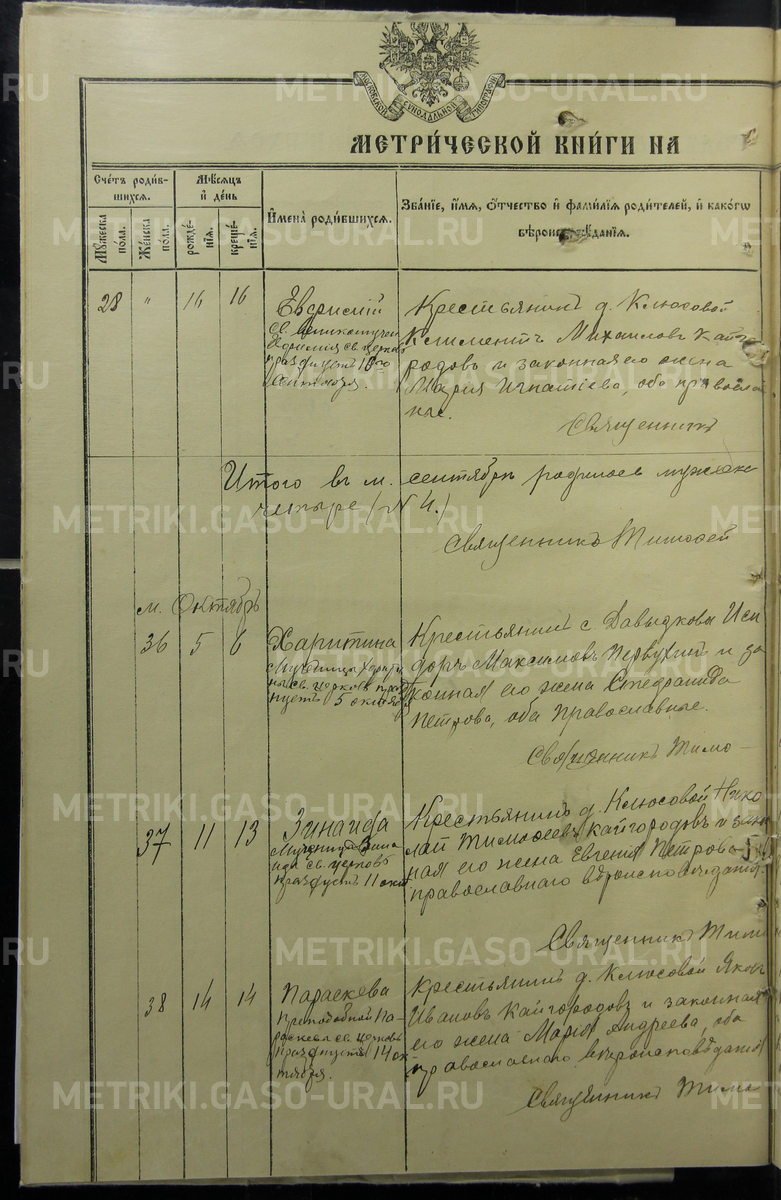 МОСКОВСКОЙ СѴНОДАЛЬНОЙ ТИПОГРАФІИ
МЕТРИ́ЧЕСКОЙ КНИ́ГИ НА
Счетъ роди́вшихся.
Мѣсяцъ и҆ де́нь
И҆мена̀ роди́вшихся.
Зва́нїе, и҆́мѧ, ѻ҆́тчество и҆ фами́лїѧ роди́телей, и҆ како́гѡ
вѣроисповѣ́данїѧ.
Мꙋ́жеска по́ла.
Же́нска по́ла.
рожде́нїѧ.
креще́нїѧ.
28 " 16 16 Евфимій
св. великомучен
Евфимія св. церковь
празднуетъ 16го
сентября.
Крестьянинъ д. Клюсовой
Климентъ Михаиловъ Кайго
родовъ и законная его жена
Марія Игнатіева, оба православ
ные.
Священникъ
Итого въ м. сентябрѣ родилось мужеска
четыре (N 4.)
Священникъ Тимофей
м. Октябрь
36 5 6 Харитина
Мученицы Харити
ны св. церковь праз
нуетъ 5 октяб
Крестьянинъ с Давыдкова Иси
доръ Максимовъ Первухинъ и за
конная его жена Стефанида
Петрова, оба православные.
Священникъ Тимо-
37 11 13 Зинаида
Мученицу Зина
иду св. церковь
празднуетъ 11 окт
Крестьянинъ д. Клюсовой Нико
лай Тимофеевъ Кайгородовъ и закон
ная его жена Евгенія Петрова
православнаго вѣроисповѣданія.
Священникъ Тим
38 14 14 Параскева
Преподобной Па-
раскевы св. церковь
празднуетъ 14 ок
тября.
Крестьянинъ д. Клюсовой Яковъ
Ивановъ Кайгородовъ и законная
его жена Марія Андреева, оба
православнаго вѣроисповѣданія
Священникъ Тимо
METRIKI.GASO-URAL.RU